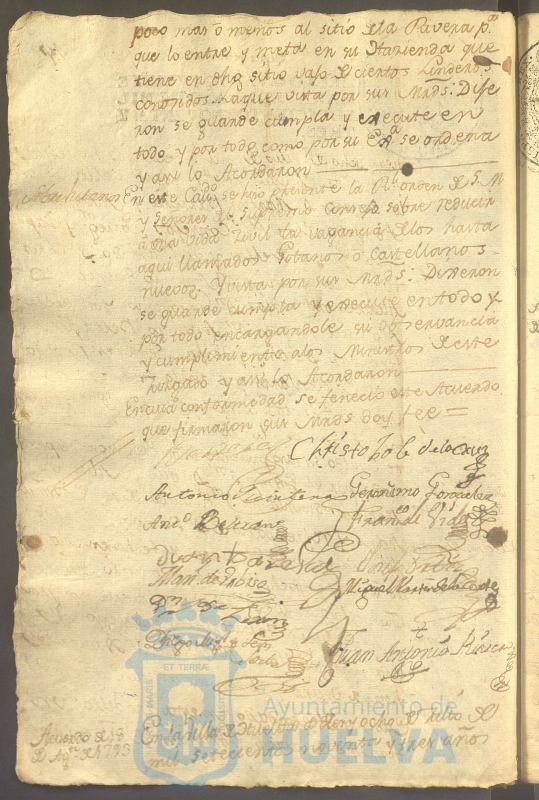 poco mas o menos al sitio de la Rivera pa.
que lo entre y meta en su Hazienda que
tiene en dho. sitio vajo de ciertos Linderos
contenidos. La que vista por sus Mrds: Dije
ron se guarde cumpla y execute en
todo y por todo como por su Exa. se ordena
y asi lo Acordaron
Sobre Jitanos En este Cavdo. se hizo presente la Rl. orden de S. M.
y Señores de Supremo consejo sobre reducir
a una vida Zivil la vagancia de los hasta
aqui llamados Gitanos o Castellanos
nuevos. Y vista por sus Mrds: Dixeron
se guarde cumpla y execute en todo y
por todo encargandole su observancia
y cumplimiento a los Ministros de este
Juzgado y asi lo Acordaron
En cuia conformidad se feneció este Acuerdo
que firmaron sus Mrds doy fee =
Christobl. de la Cruz
Antonio Quintero Geronimo Gonzalez
Anto. Franco. de Vidal
Miguel
Juan Antonio
Acuerdo de 18
de Agto. de 1793
En la villa de Huelva a diez y ocho de Agto de
mil setecientos noventa y tres años
ET TERRÆ
Ayuntamiento de
HUELVA